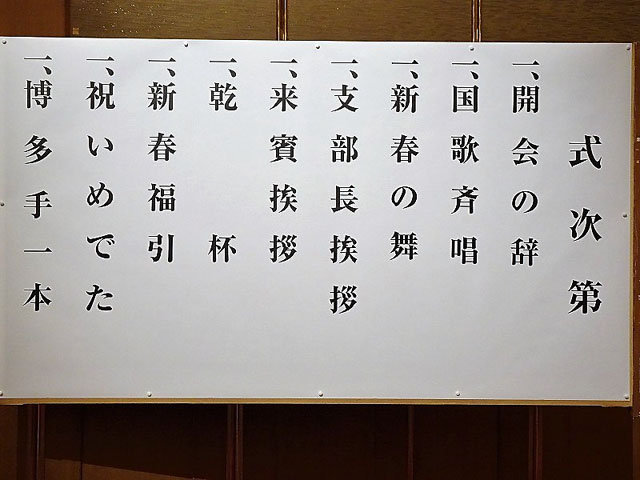 式次第
一、開会の辞
一、国歌斉唱
一、新春の舞
一、支部長挨拶
一、来賓挨拶
一、乾杯
一、新春福引
一、祝いめでた
一、博多手一本